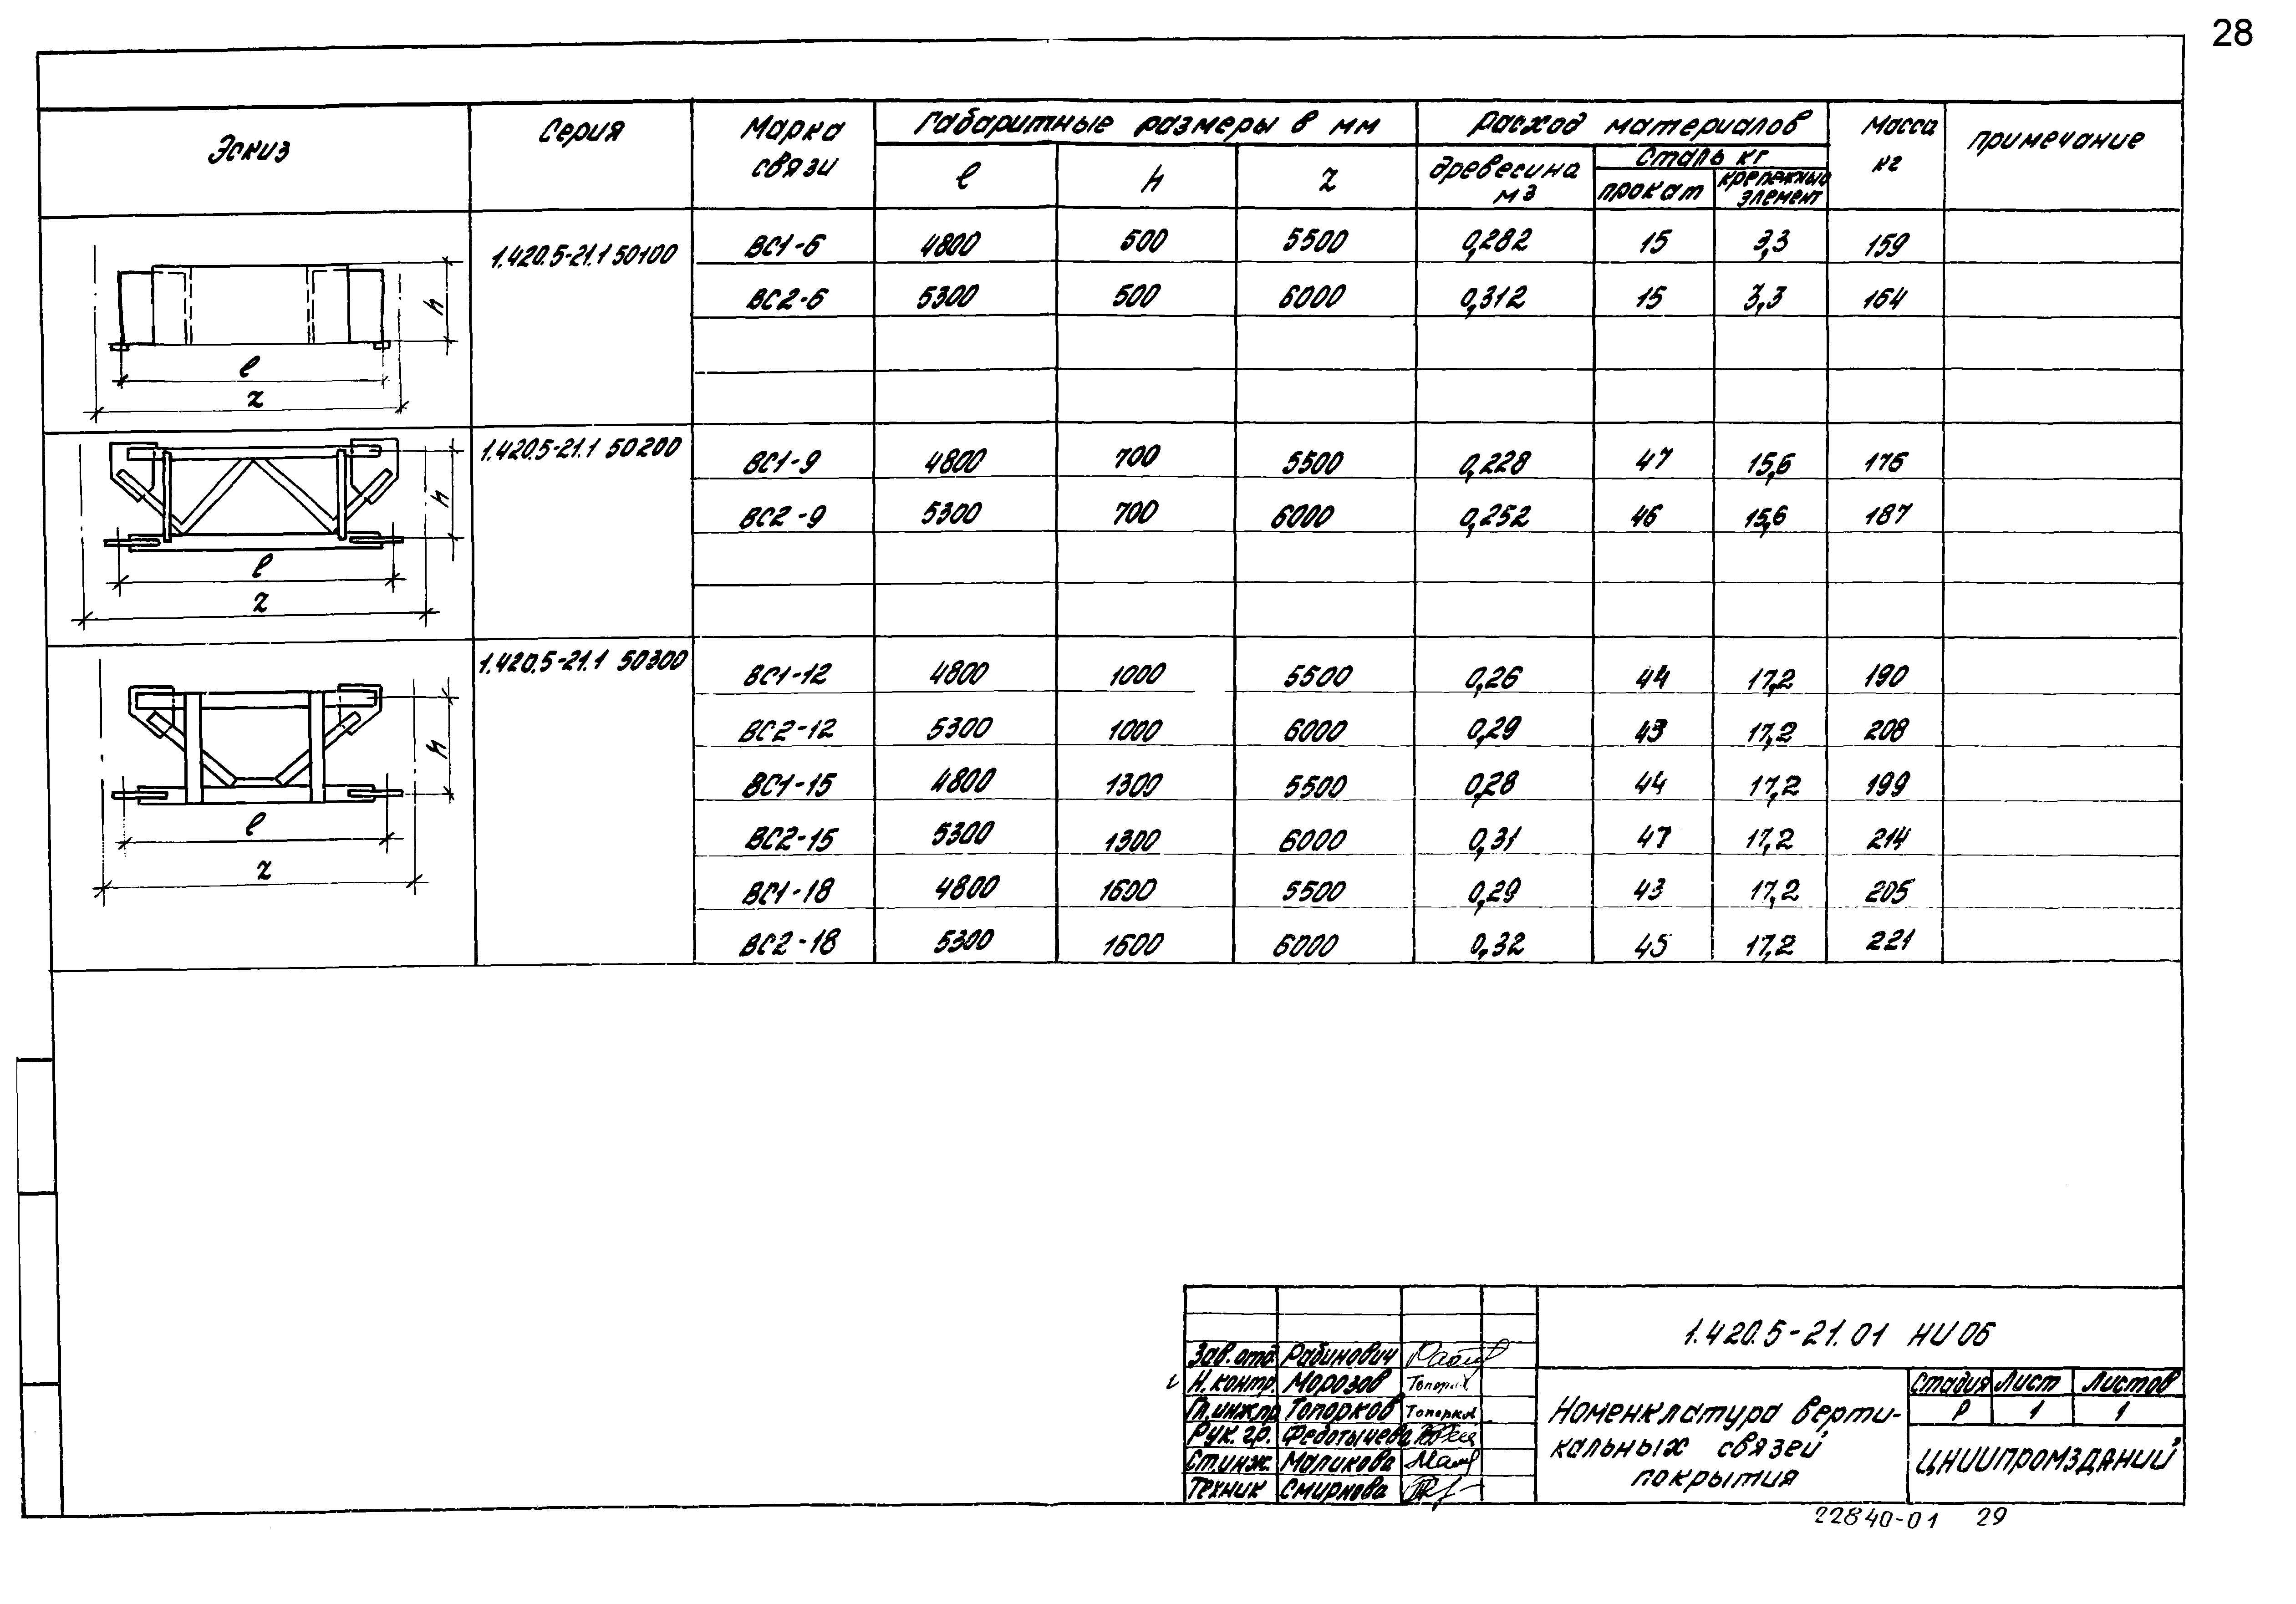 28
Эскиз Серия Марка связи Габаритные размеры в мм Расход материалов Масса кг Примечание
l h z древесина м3 Сталь кг
прокат крепежный элемент
1.420.5-21.1 50100 ВС1-6 4800 500 5500 0,282 15 3,3 159
ВС2-6 5300 500 6000 0,312 15 3,3 164
h
l
z
1.420.5-21.1 50200 ВС1-9 4800 700 5500 0,228 47 15,6 176
ВС2-9 5300 700 6000 0,252 46 15,6 187
h
l
z
1.420.5-21.1 50300 ВС1-12 4800 1000 5500 0,26 44 17,2 190
ВС2-12 5300 1000 6000 0,29 43 17,2 208
ВС1-15 4800 1300 5500 0,28 44 17,2 199
ВС2-15 5300 1300 6000 0,31 47 17,2 214
ВС1-18 4800 1600 5500 0,29 43 17,2 205
ВС2-18 5300 1600 6000 0,32 45 17,2 221
h
l
z
1.420.5-21.01 НИ06
Зав. отд Рабинович
Н. контр. Морозов
Гл. инж пр Топорков
Рук. гр. Федотычева
Ст. инж. Маликова
Техник Смирнова
Номенклатура верти-
кальных связей
покрытия
Стадия Лист Листов
Р 1 1
ЦНИИПРОМЗДАНИЙ
22840-01 29